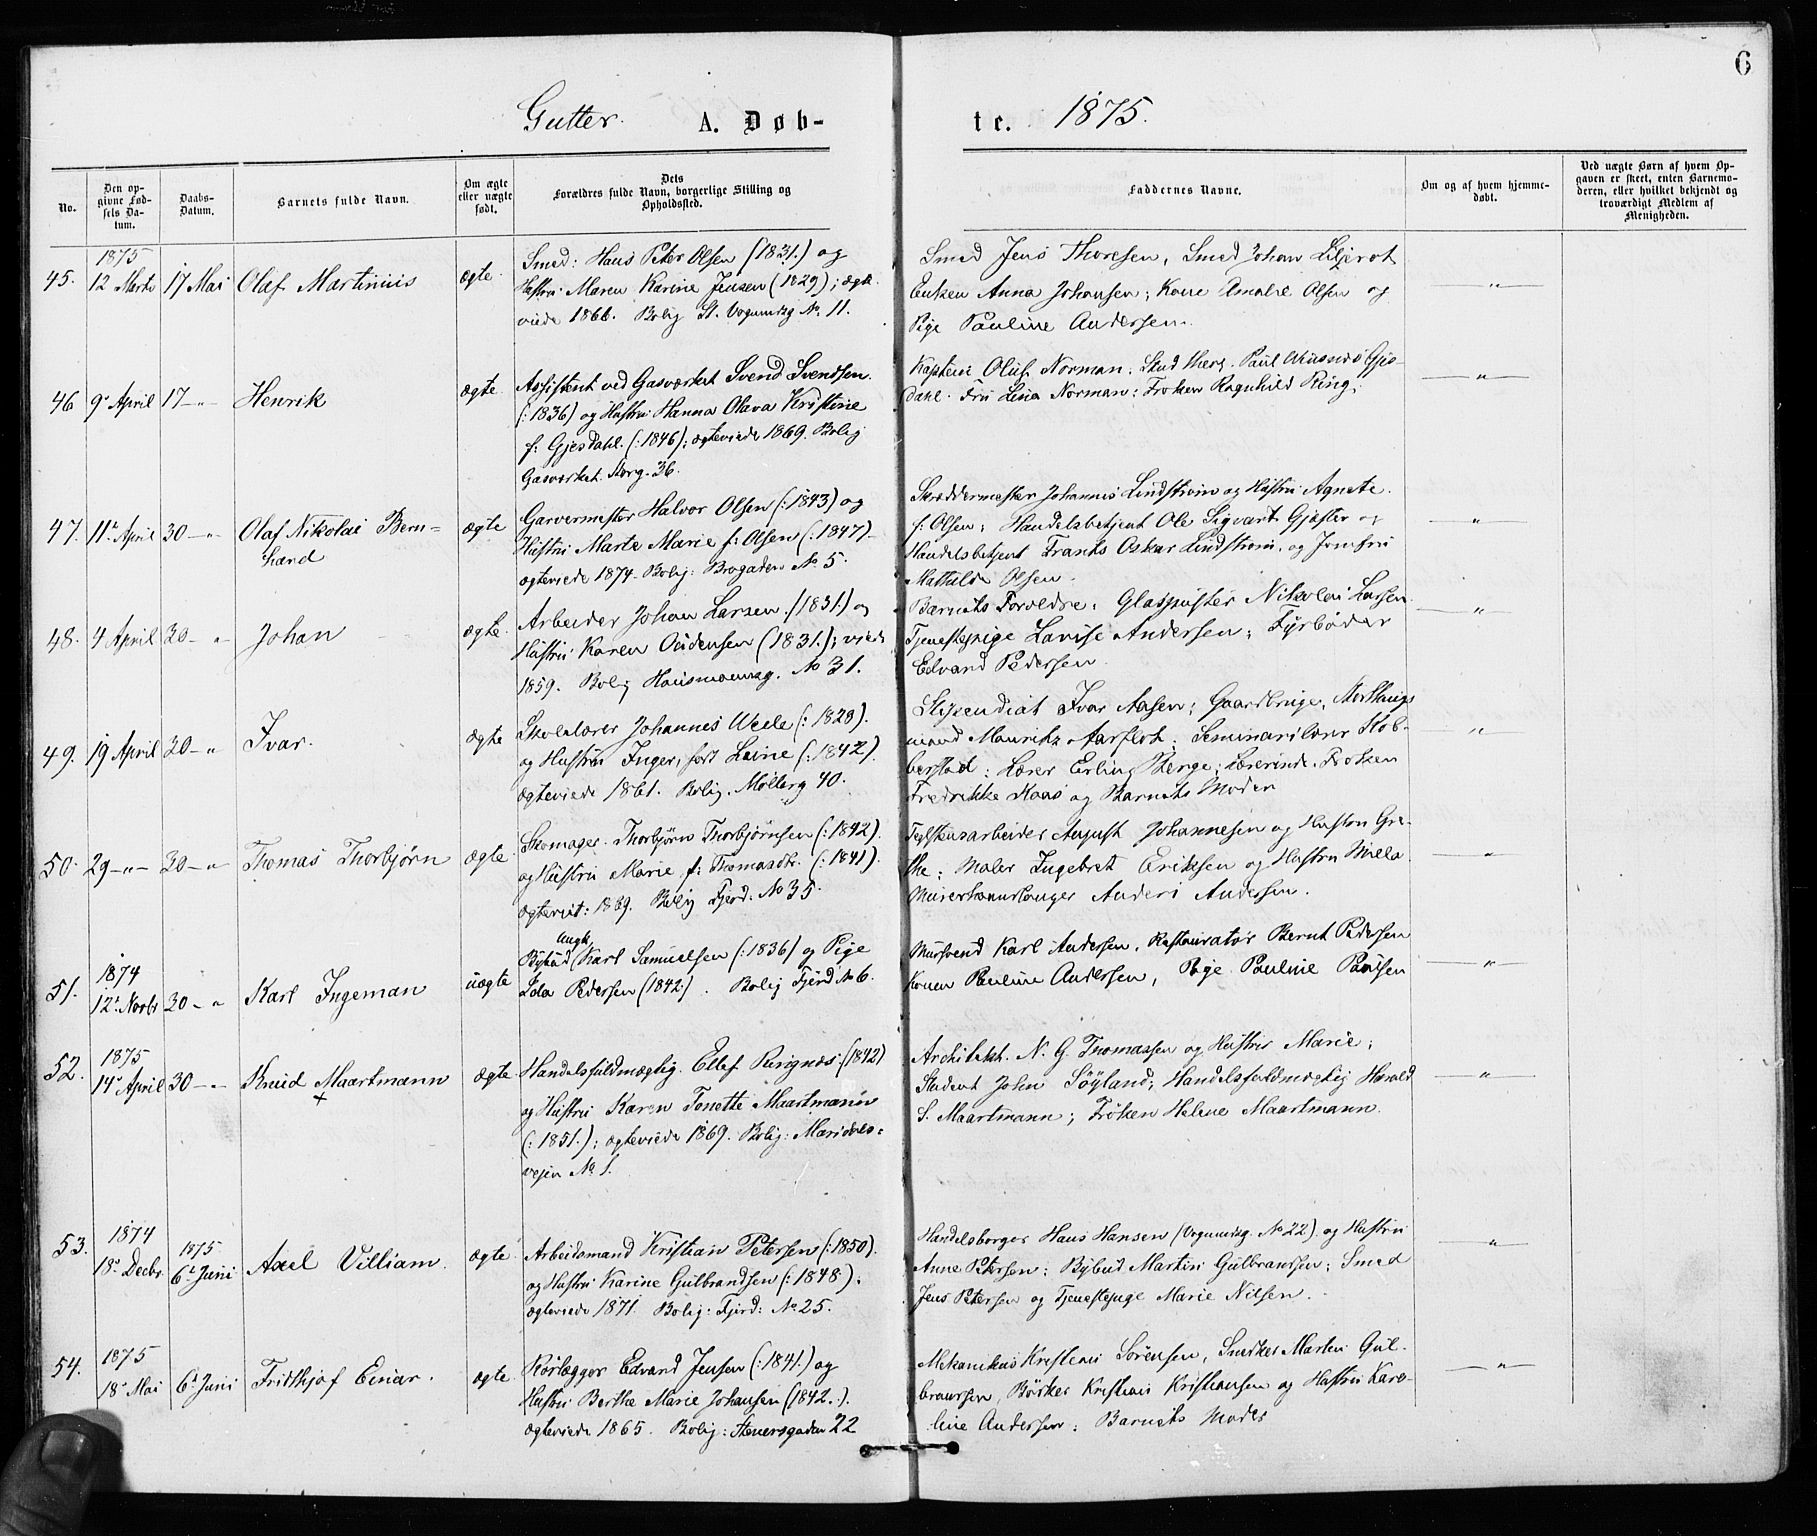 6
Gutter. A. Døb-
te. 1875.
No.
Den op-
givne Fød-
sels Da-
tum.
Daabs-
Datum.
Barnets fulde Navn.
Om ægte
eller uægte
født.
Dets
Forældres fulde Navn, borgerlige Stilling og
Opholdssted.
Faddernes Navne.
Om og af hvem hjemme-
døbt.
Ved uægte Børn af hvem Op-
gaven er skeet, enten Barnemo-
deren, eller hvilket bekjendt og
troværdigt Medlem af
Menigheden.
1875
45. 12 Marts 17 Mai Olaf Martinius ægte.
Smed: Hans Peter Olsen (1831.) og
Hustru Maren Karine Jensen (1829); ægte-
viede 1866. Bolig St. Vognmdsg No. 11.
Smed Jens Thoresen, Smed Johan Liljerot
Enken Anna Johansen; Kone Amalie Olsen og
Pige Pauline Andersen.
— " —
46 9' April 17 — " — Henrik ægte
Assistent ved Gasværket Svend Svendsen.
(: 1836) og Hustru Hanna Olava Kristine
f: Gjesdahl. (: 1846); ægteviede 1869. Bolig
Gasværket. Storg. 36.
Kaptein Oluf Norman; Stud. Gjes-
dahl. Fru Lina Norman; Frøken Ragnhild Ring;
— " —
47. 11' April 30 — " Olaf Nikolai Bern-
hard ægte
Garvermester Halvor Olsen (: 1843) og
Hustru Marte Marie f: Olsen (: 1847)
ægteviede 1874. Bolig: Brogaden No 5.
Skræddermester Johannes Lindstrøm og Hustru Agnete
f: Olsen; Handelsbetjent Ole Sigvart Gjøsler og
Handelsbetjent Frants Oskar Lindstrøm, og Jomfru
Mathilde Olsen.
— " —
48. 4 April 30 — " Johan ægte.
Arbeider Johan Larsen (1831.) og
Hustru Karen Audensen (1831.); viede
1859. Bolig Hausmannsg. No 31.
Barnets Forældre; Glaspuster Nikolai Larsen
Tjenestepige Lovise Andersen; Fyrbøder
Edvard Pedersen.
— " —
49. 19 April 30 — " Ivar. ægte
Skolelærer Johannes Velle (: 1829).
og Hustru Inger, født Leine (: 1842).
ægteviede 1861. Bolig. Møllerg 40.
Stipendiat Ivar Aasen; Gaardbruger, Storthings
mand Mauritz Aarflot; Seminarilærer Stob-
berstad; Lærer Erling Berge; Lærerinde. Frøken
Fredrikke Kaas og Barnets Moder
— " —
50. 29 — " — 30 — " Thomas Thorbjørn ægte
Skomager. Thorbjørn Thorbjørnsen (: 1842).
og Hustru Marie f: Thomasdtr. (: 1841).
ægteviet: 1869. Bolig Fjerd: No 35.
Teglstensarbeider August Johannesen og Hustru Gre-
the; Maler Ingebret Eriksen og Hustru Milla
Murerhaandlanger Anders Andersen.
— " —
1874
51. 12' Novbr 30 — " Karl Ingeman uægte
Ungk.
Bybud (Karl Samuelsen (: 1836) og Pige
Lola Pedersen (1842.). Bolig Fjerd No 6.
Mursvend Karl Andersen, Restauratør Bernt Pedersen
Konen Pauline Andersen, Pige Pauline Paulsen
— " —
1875
52. 14' April 30 — " Knud Maartmann ægte
x
Handelsfuldmægtig. Ellef Ringnes (1842)
og Hustru Karen Tonette Maartmann
(: 1851.); ægteviede 1869. Bolig: Maridals-
vejen No 1.
Architekt. N. G. Thomassen og Hustru Marie;
Student John Söyland; Handelsfuldmægtig Harald
S. Maartmann; Frøken Helene Maartmann.
— " —
1874
53. 18' Decbr. 1875 6' Juni Axel Villiam ægte
Arbeidsmand Kristian Petersen (: 1850).
og Hustru Karine Gulbrandsen (: 1848);
ægteviede 1871. Bolig: Fjerd: No 25.
Handelsborger Hans Hansen (Vognmdsg. No 22) og Hustru
Anne Petersen; Bybud Martin Gulbransen; Smed
Jens Petersen og Tjenestepige Marie Nilsen.
— " —
1875
54. 18' Mai 6' Juni Fridthjof Einar. ægte.
Rørlægger Edvard Jensen (: 1841.) og
Hustru Berthe Marie Johansen (1842.).
ægteviede 1865. Bolig: Stenersgaden 22
Mekanikus Kristian Sørensen, Snedker Martin Gul-
bransen, Bødker Kristian Kristiansen og Hustru Karo-
line Andersen; Barnets Moder
— " —